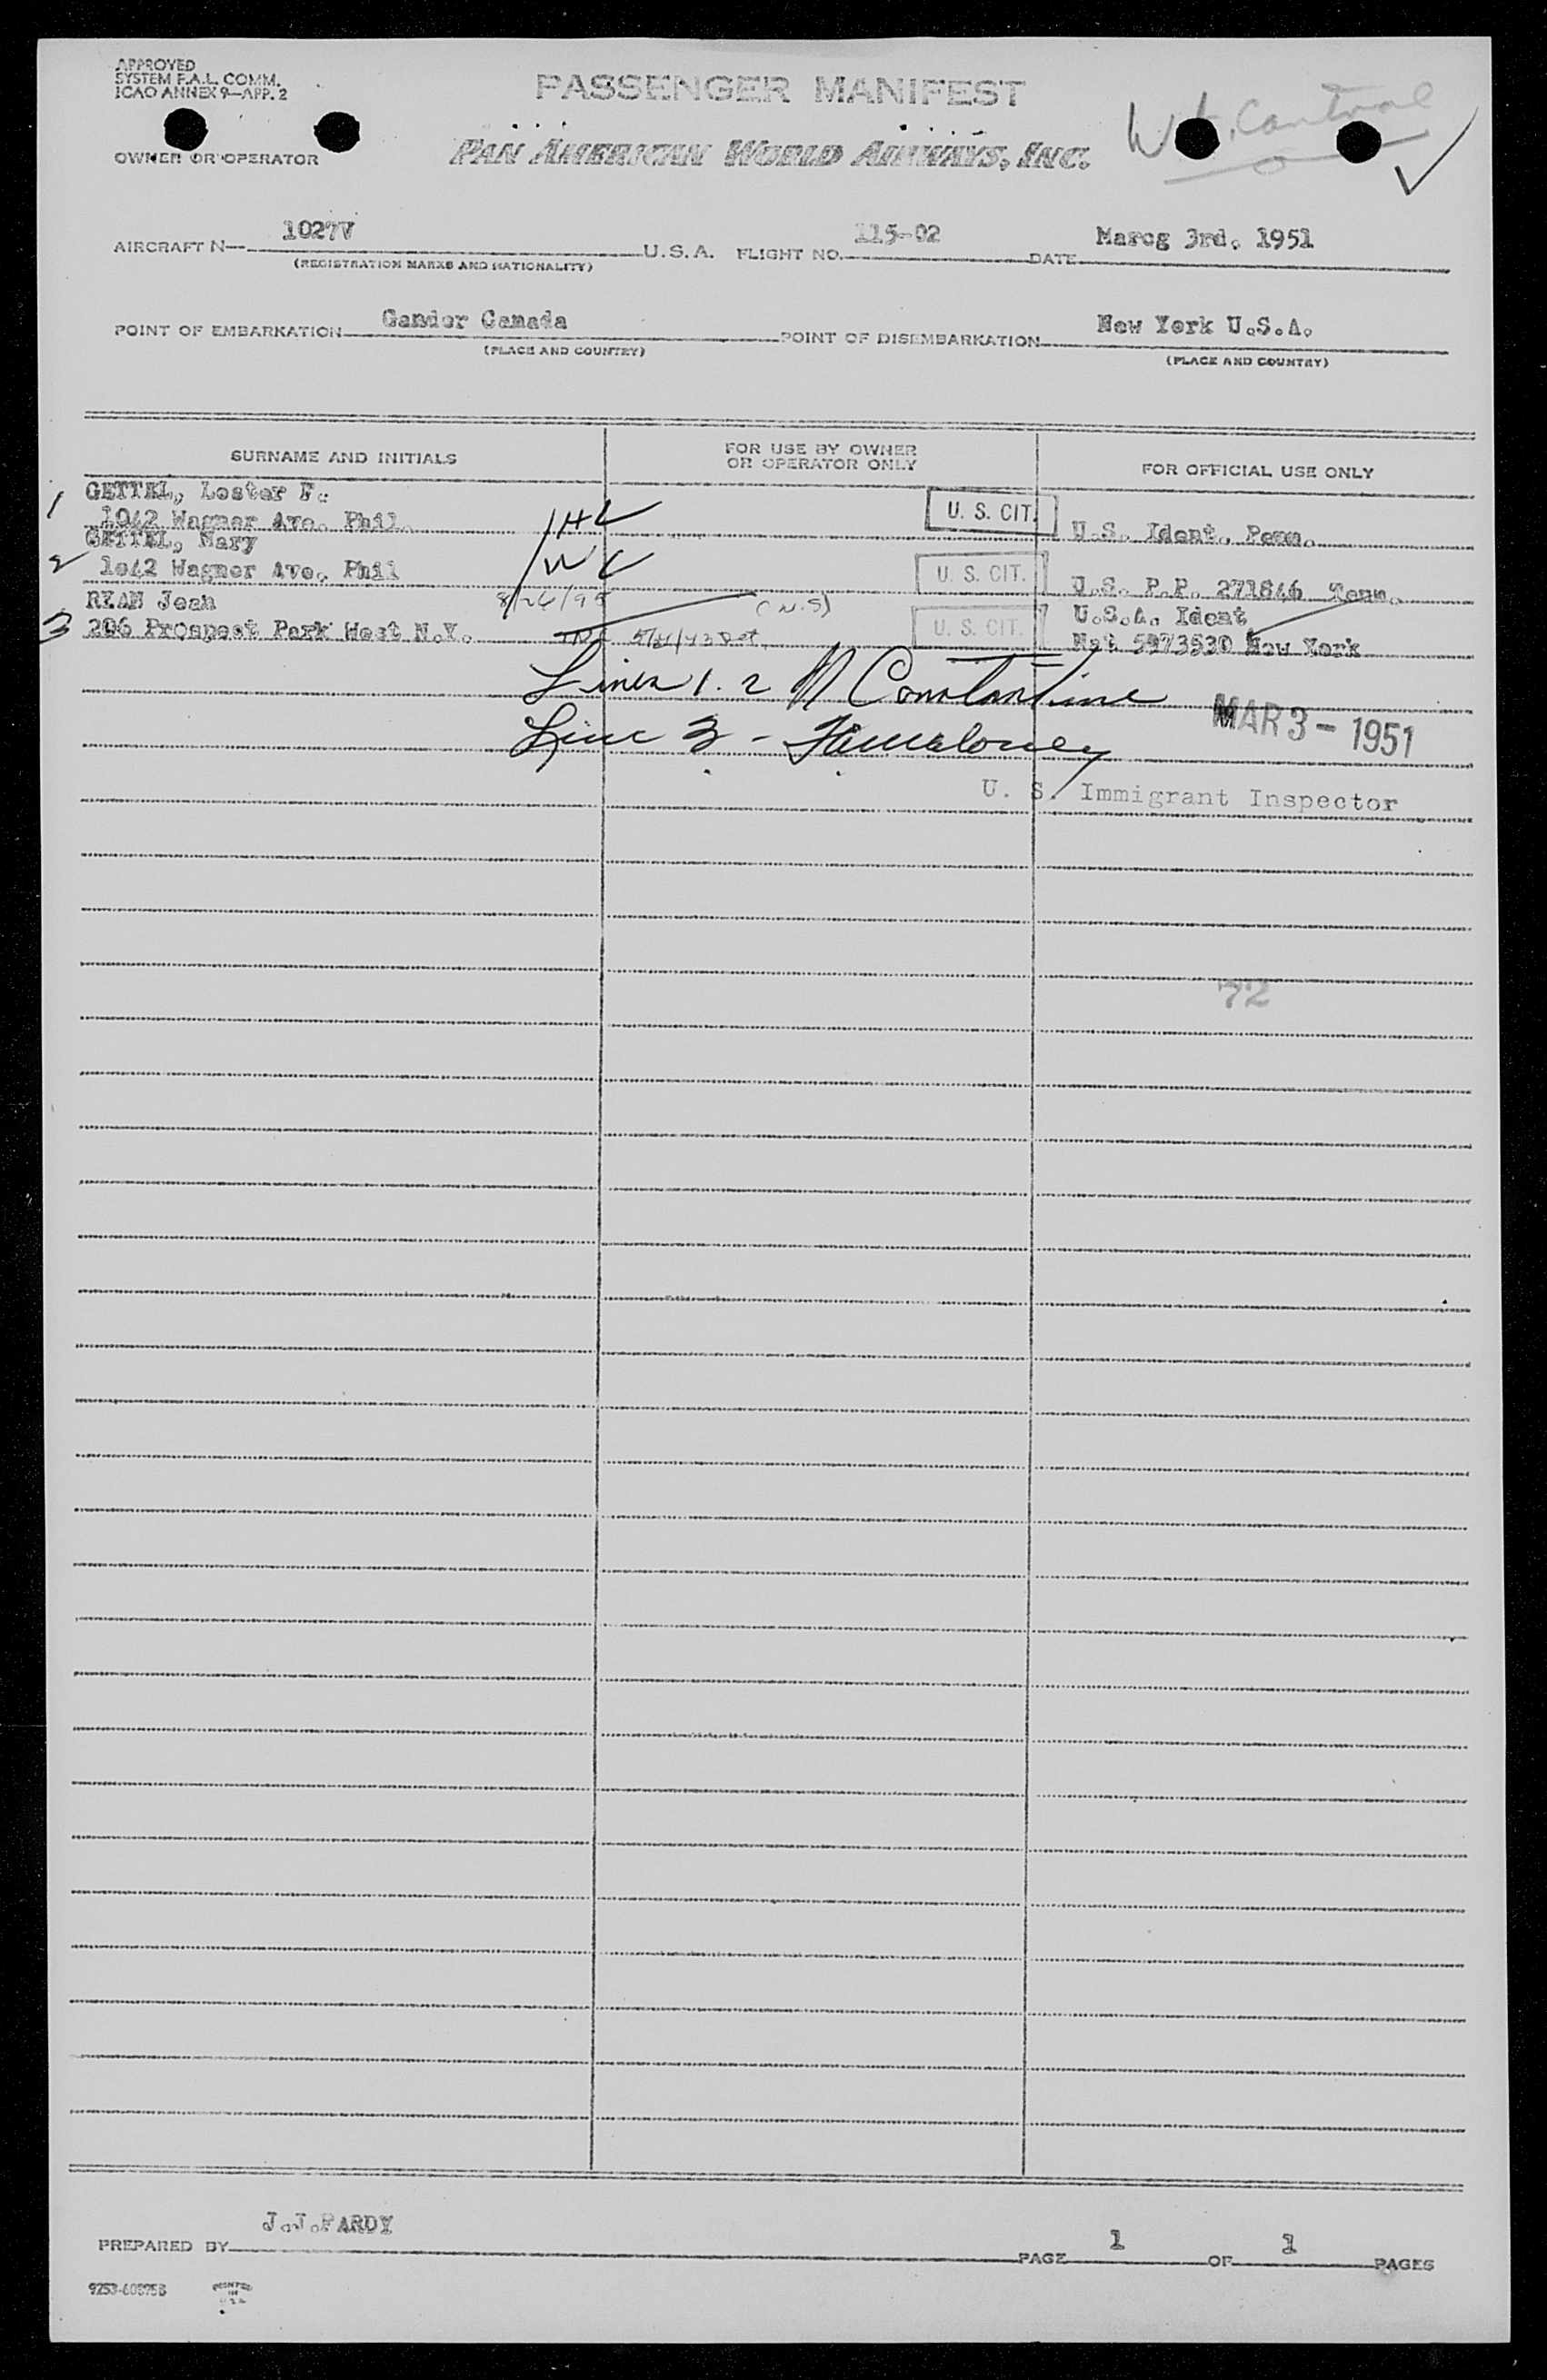 APPROVED
SYSTEM F.A.L. COMM.
ICAO ANNEX 9—APP. 2
PASSENGER MANIFEST
OWNER OR OPERATOR
PAN AMERICAN WORLD AIRWAYS, INC.
AIRCRAFT N— 1027V U.S.A. FLIGHT NO. 115-02 DATE Marcg 3rd. 1951
(REGISTRATION MARKS AND NATIONALITY)
POINT OF EMBARKATION Gander Canada POINT OF DISEMBARKATION New York U.S.A.
(PLACE AND COUNTRY) (PLACE AND COUNTRY)
SURNAME AND INITIALS FOR USE BY OWNER OR OPERATOR ONLY FOR OFFICIAL USE ONLY
1 GETTEL, Lester F.
1042 Wagner Ave. Phil. U. S. CIT. U.S. Ident. Penn.
GETTEL, Mary
2 1o42 Wagner Ave. Phil U. S. CIT. U.S. P.P. 271846
RYAN Jean 8/26/95 (N.S) U.S.A. Ident
3 206 Prospect Park West N.Y. U. S. CIT. Nat 5973530 New York
Lines 1. 2 M Constantine
MAR 3 - 1951
Line 3 -
U. S. Immigrant Inspector
72
PREPARED BY J.J.PARDY PAGE 1 OF 1 PAGES
PRINTED IN U.S.A.